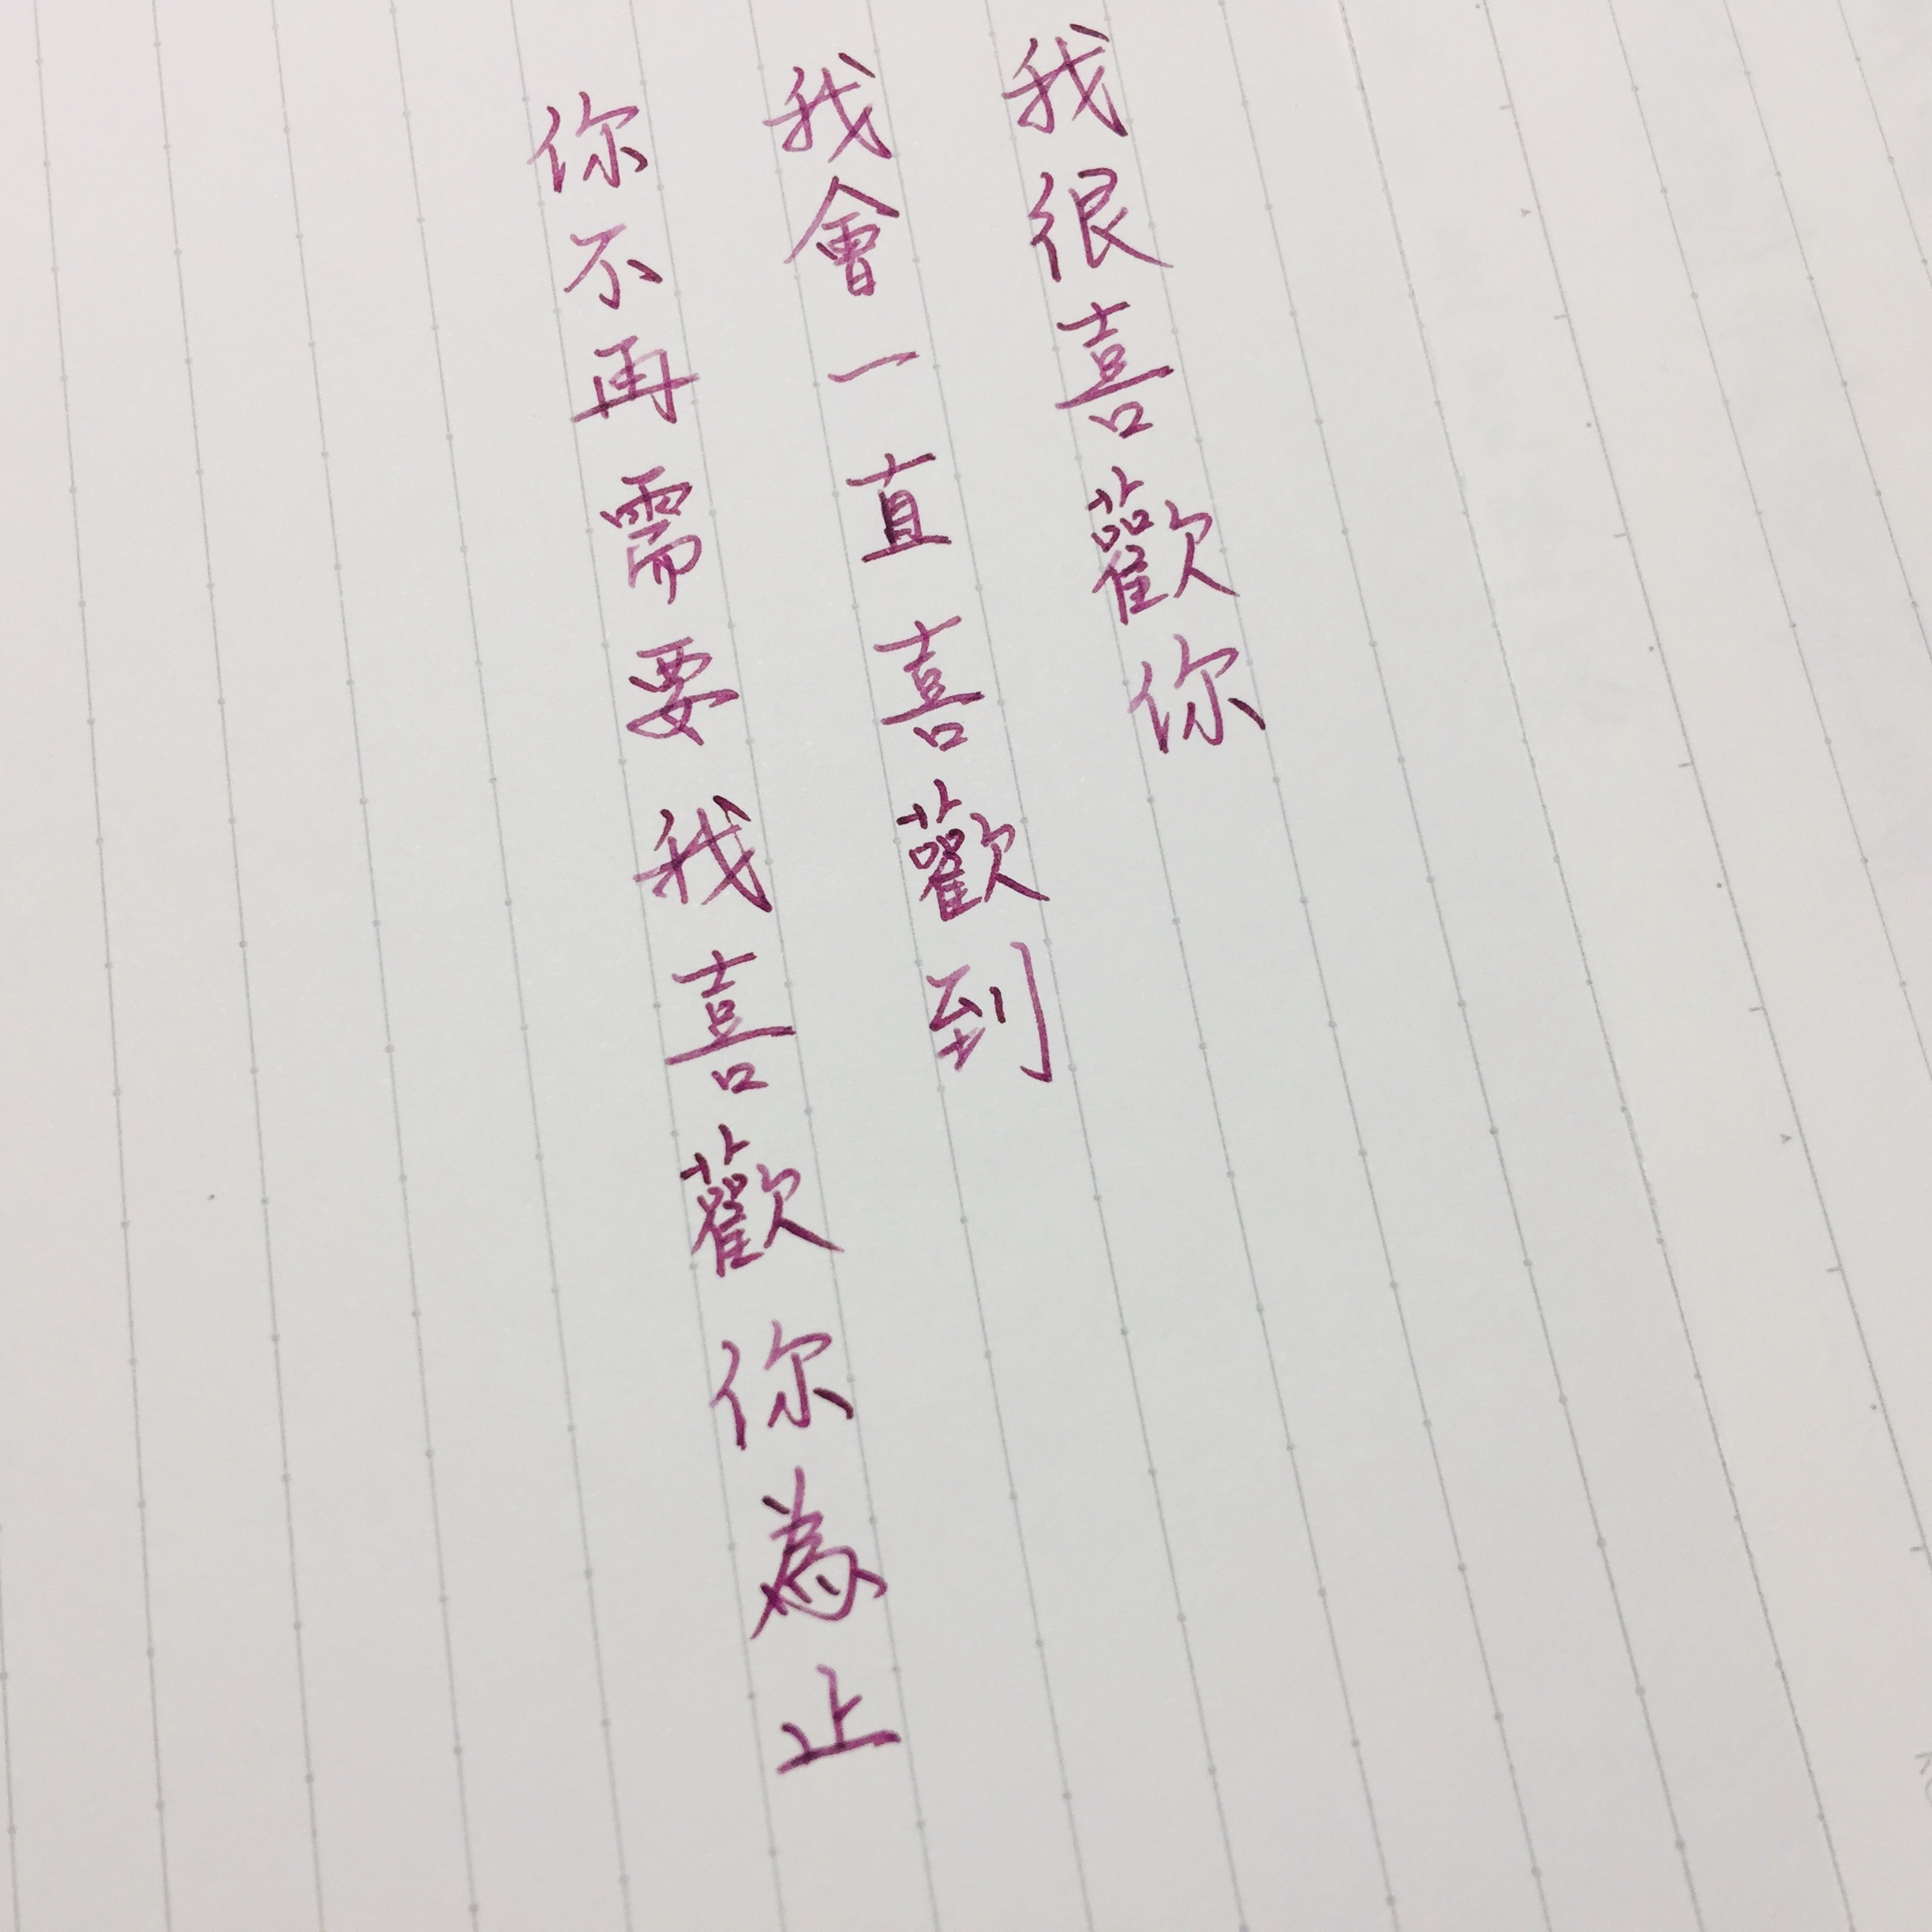 我很喜歡你
我會一直喜歡到
你不再需要我喜歡你為止